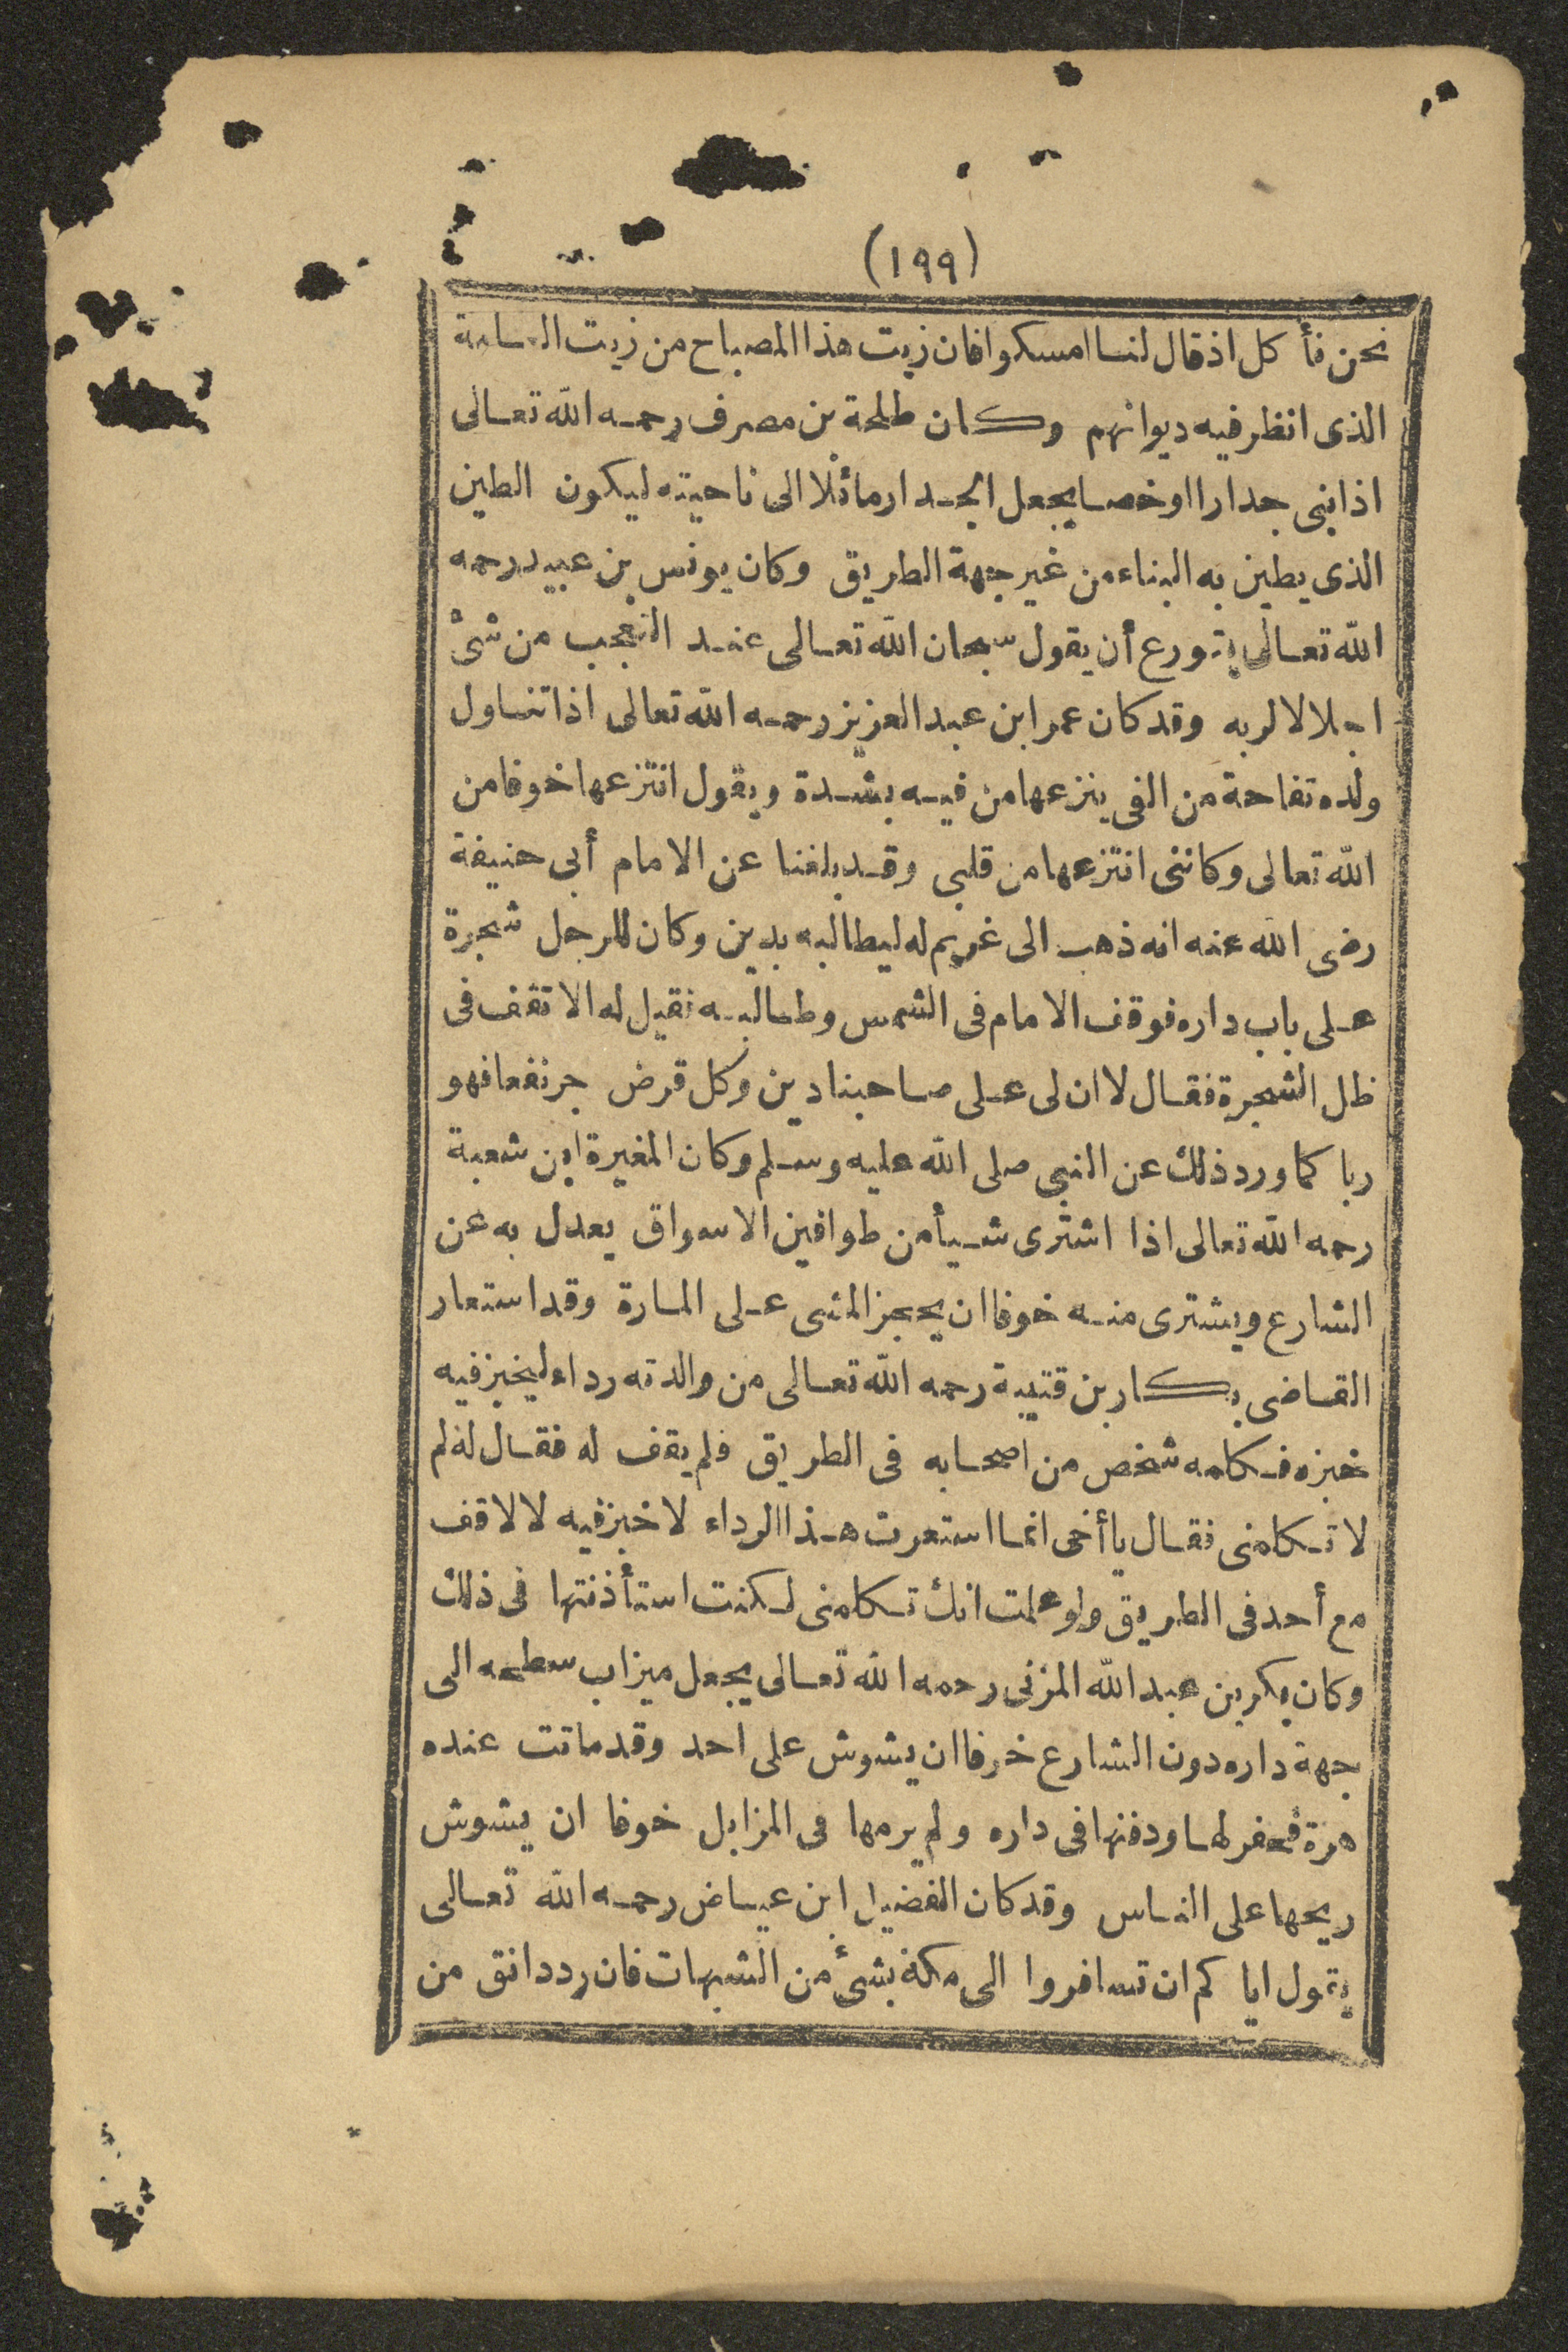 (١٩٩)
نحن نأكل اذ قال لنا امسكوا فان زيت هذا المصباح من زيت العامة
الذى انظر فيه ديوانهم وكان طلحة بن مصرف رحمه الله تعالى
اذا بنى جدارا او خصا يجعل الجدار مائلا الى ناحيته ليكون الطين
الذى يطين به البناء من غير جهة الطريق وكان يونس بن عبيد رحمه
الله تعالى يتورع أن يقول سبحان الله تعالى عند التعجب من شئ
اجلالا لربه وقد كان عمر ابن عبد العزيز رحمه الله تعالى اذا تناول
ولده تفاحة من الفى ينزعها من فيه بشدة ويقول انتزعها خوفا من
الله تعالى وكاننى انتزعها من قلبى وقد بلغنا عن الامام أبى حنيفة
رضى الله عنه انه ذهب الى غريم له ليطالبه بدين وكان للرجل شجرة
على باب داره فوقف الامام فى الشمس وطالبه فقيل له الا تقف فى
ظل الشجرة فقال لا ان لى على صاحبنا دين وكل قرض جر نفعا فهو
ربا كما ورد ذلك عن النبى صلى الله عليه وسلم وكان المغيرة ابن شعبة
رحمه الله تعالى اذا اشترى شيأ من طوافين الاسواق يعدل به عن
الشارع ويشترى منه خوفا ان يحجز المشى على المارة وقد استعار
القاضى بكار بن قتيبة رحمه الله تعالى من والدته رداء ليخبز فيه
خبزه فكلمه شخص من اصحابه فى الطريق فلم يقف له فقال له لم
لا تكلمنى فقال يا أخى انما استعرت هذا الرداء لاخبز فيه لا لاقف
مع أحد فى الطريق ولو علمت انك تكلمنى لكنت استأذنتها فى ذلك
وكان بكر بن عبد الله المزنى رحمه الله تعالى يجعل ميزاب سطحه الى
جهة داره دون الشارع خوفا ان يشوش على احد وقد ماتت عنده
هرة فحفر لها ودفنها فى داره ولم يرمها فى المزابل خوفا ان يشوش
ريحها على الناس وقد كان الفضيل ابن عياض رحمه الله تعالى
يقول اياكم ان تسافروا الى مكة بشئ من الشبهات فان رد دانق من